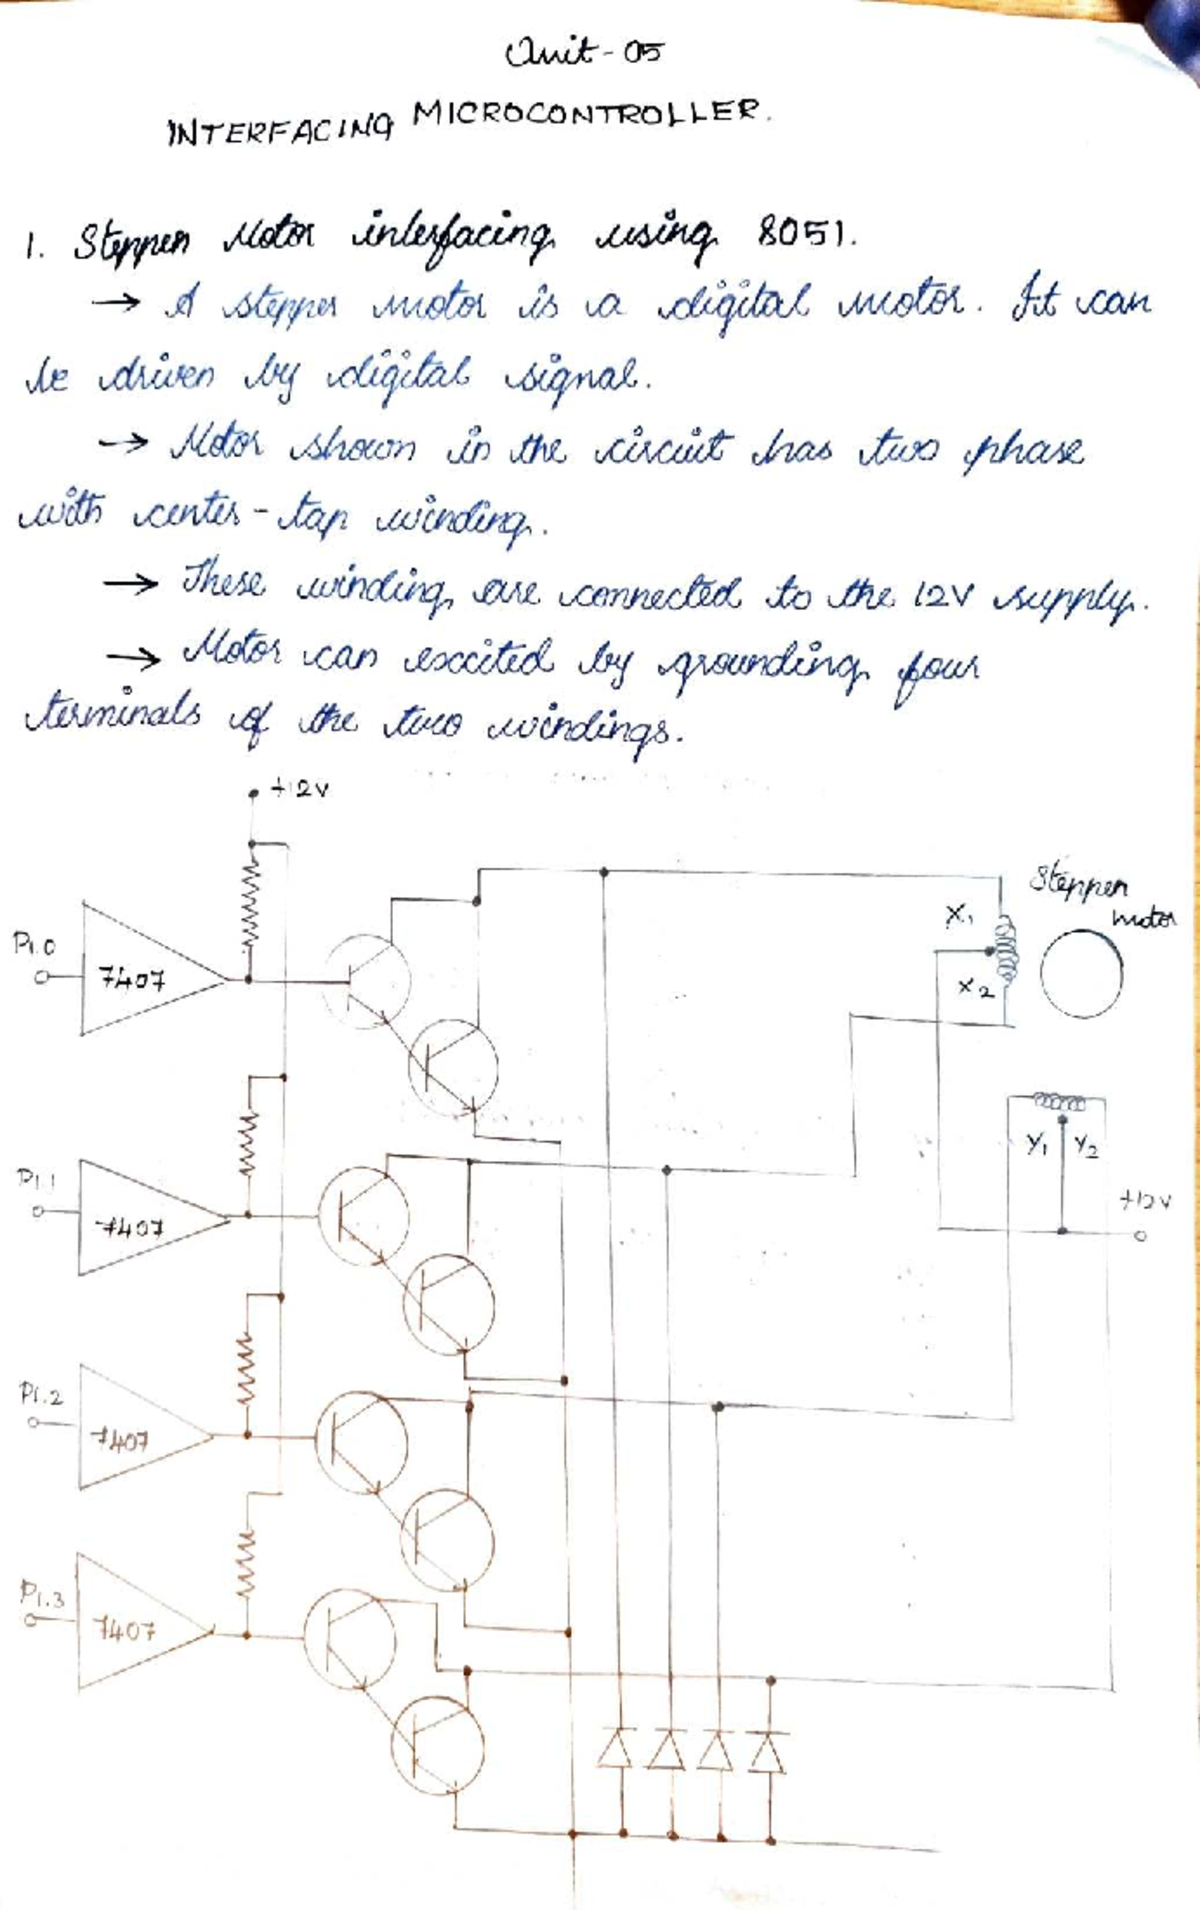 Unit-05
INTERFACING MICROCONTROLLER.
1. Stepper Motor interfacing using 8051.
→ A stepper motor is a digital motor. It can
be driven by digital signal.
→ Motor shown in the circuit has two phase
with center-tap winding.
→ These winding are connected to the 12V supply.
→ Motor can excited by grounding four
terminals of the two windings.
+12V
Stepper
motor
X1
P1.0
7407
X2
Y1 Y2
P1.1
7407
+12V
P1.2
7407
P1.3
7407